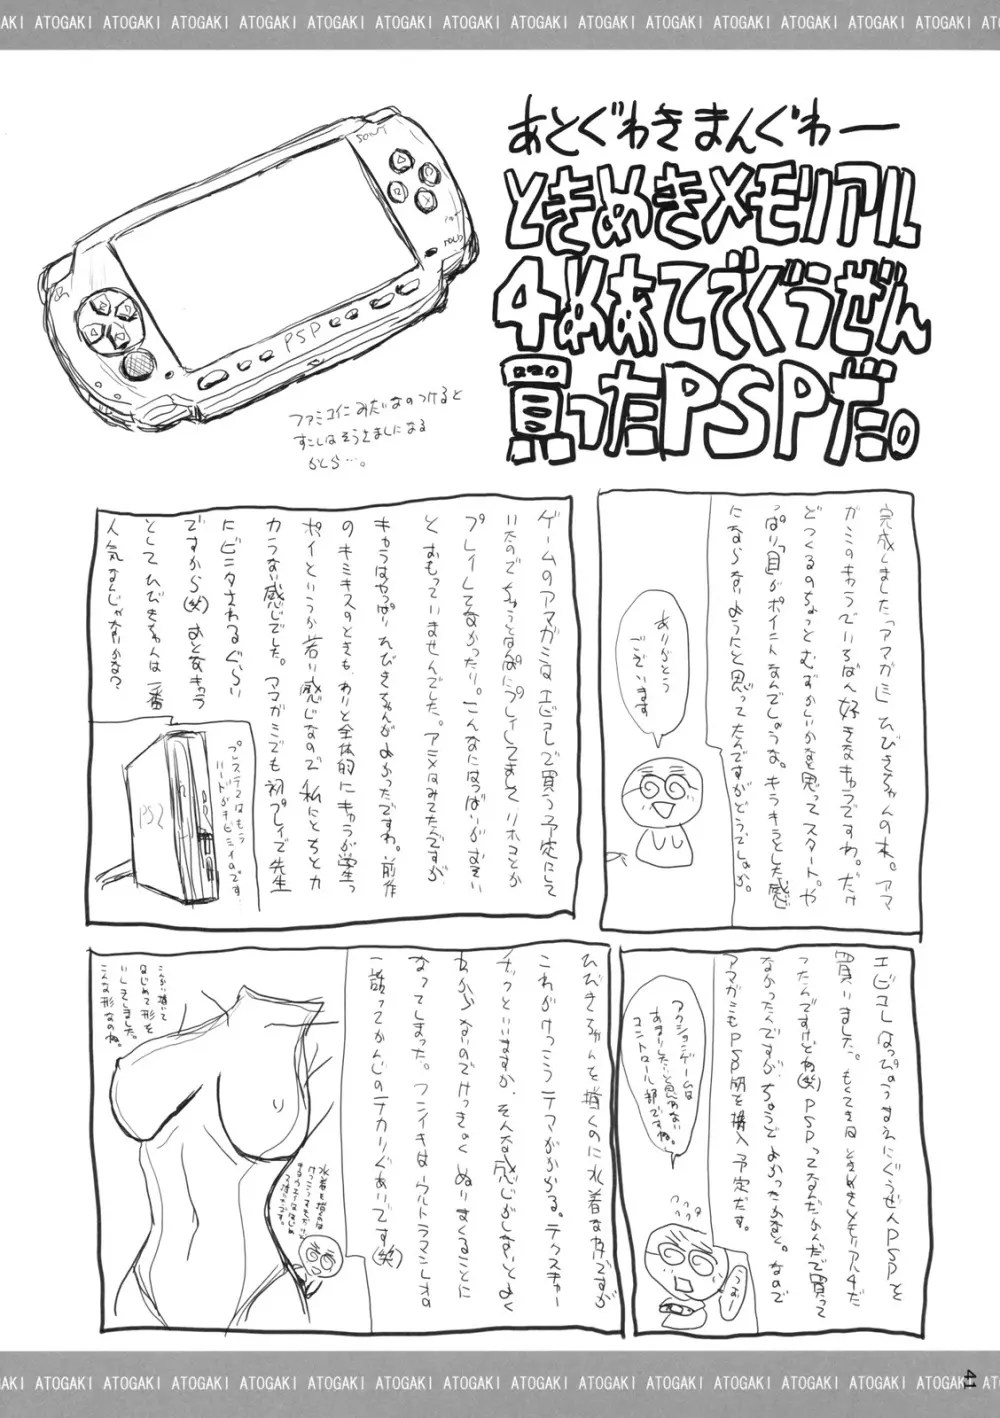 ATOGAKI ATOGAKI ATOGAKI ATOGAKI ATOGAKI ATOGAKI ATOGAKI
あとぐわきまんぐわー
ときめきメモリアル
4めあてでぐうぜん
買ったPSPだ。
SONY
PSP
ファミコンにみたいなのつけると
すこしはそうさましになる
かしら…。
完成しました「アマガミ」ひびきちゃんの本。アマ
ガミのキャラでいちばん好きなキャラですわ。だけ
どつくるのちょっとむずかしいかなと思ってスタート。や
っぱり「目」がポイントなんでしょうな。キラキラとした感じ
にならないようにと思ってたんですがどうでしょうか。
ありがとう
ございます
ゲームのアマガミはエビコレで買う予定にして
プレイしてなかったり。こんなにはっぱいがおおい
とおもっていませんでした。アニメはみてたんですが
キャラはやっぱりひびきちゃんがよかったですわ。前作
のキミキスのときも、わりと全体的にキャラが学生っ
ポイというか若い感じなので私にとちとカ
カラない感じでした。アマガミでも初プレイで先生
にビンタされるぐらい
ですから(笑)おとなキャラ
としてひびきちゃんは一番
人気なんじゃないかな?
プレステ2はもう
ハードがキビシイのです
PS2
エビコレはっぴょうまえにぐうぜんPSPを
買いました。もくてきはときめきメモリアル4だ
ったんですけどね(笑)PSPってなんだかんだで買って
なかったんですが、ちょうどよかったかな。なので
アマガミもPSP用を購入予定だす。
アクションゲームは
あまりしたいと思わない
コントロール部ですね。
つおー
ひびきちゃんを描くのに水着なわけですが
これがけっこうテマがかかる。テクスチャー
チックといいますか、そんな感じがしないとよく
わからないのでけっきょくぬりまくることに
なってしまった。フンイキはウルトラマンレオの
一話ってかんじのテカリぐあいです(笑)
こんかい描いて
はじめて形を
いしきしました。
こんな形なのね。
ATOGAKI ATOGAKI ATOGAKI ATOGAKI ATOGAKI ATOGAKI ATOGAKI
41